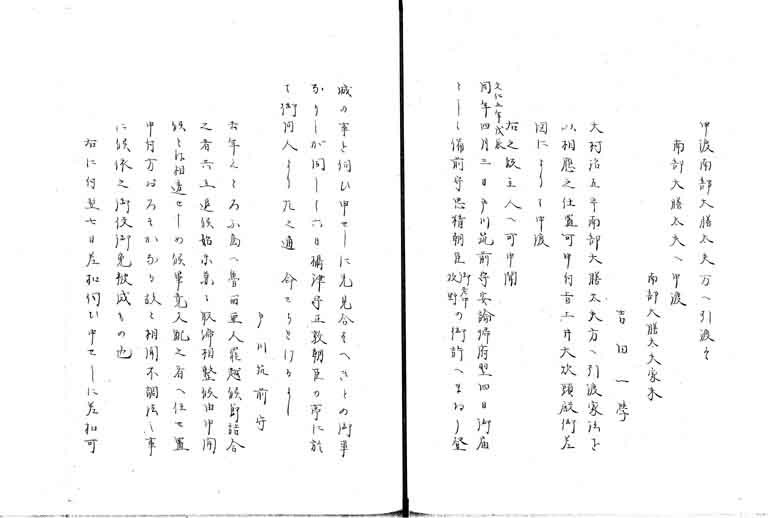 申渡南部大膳太夫方へ引渡す
南部大膳太夫へ申渡
南部大膳太夫家来
吉田一学
大村治五平南部大膳太夫方へ引渡家法を
以相應之仕置可申付旨土井大炊頭殿御差
図によりて申渡
右之段主人へ可申聞
文化五年戊辰
同年四月三日戸川筑前守安論帰府翌四日御届
として備前守忠精朝臣御老中牧野の御許へまゐり登
城の事を伺ひ申せしに先見合すへきとの御事
なりしが同し六日摂津守正敦朝臣の亭に於
て御同人より左之通 命せらせけるよし
戸川筑前守
去年えとろふ島へ魯西亜人罷越候節詰合
之者共立退候始末篤と取締相整候由申聞
候とは相違せしめ候畢竟支配之者へ任せ置
申付方等ろそかなる故と相聞不調法之事
に候依之御役御免被成もの也
右に付翌七日差扣伺ひ申せしに差扣可